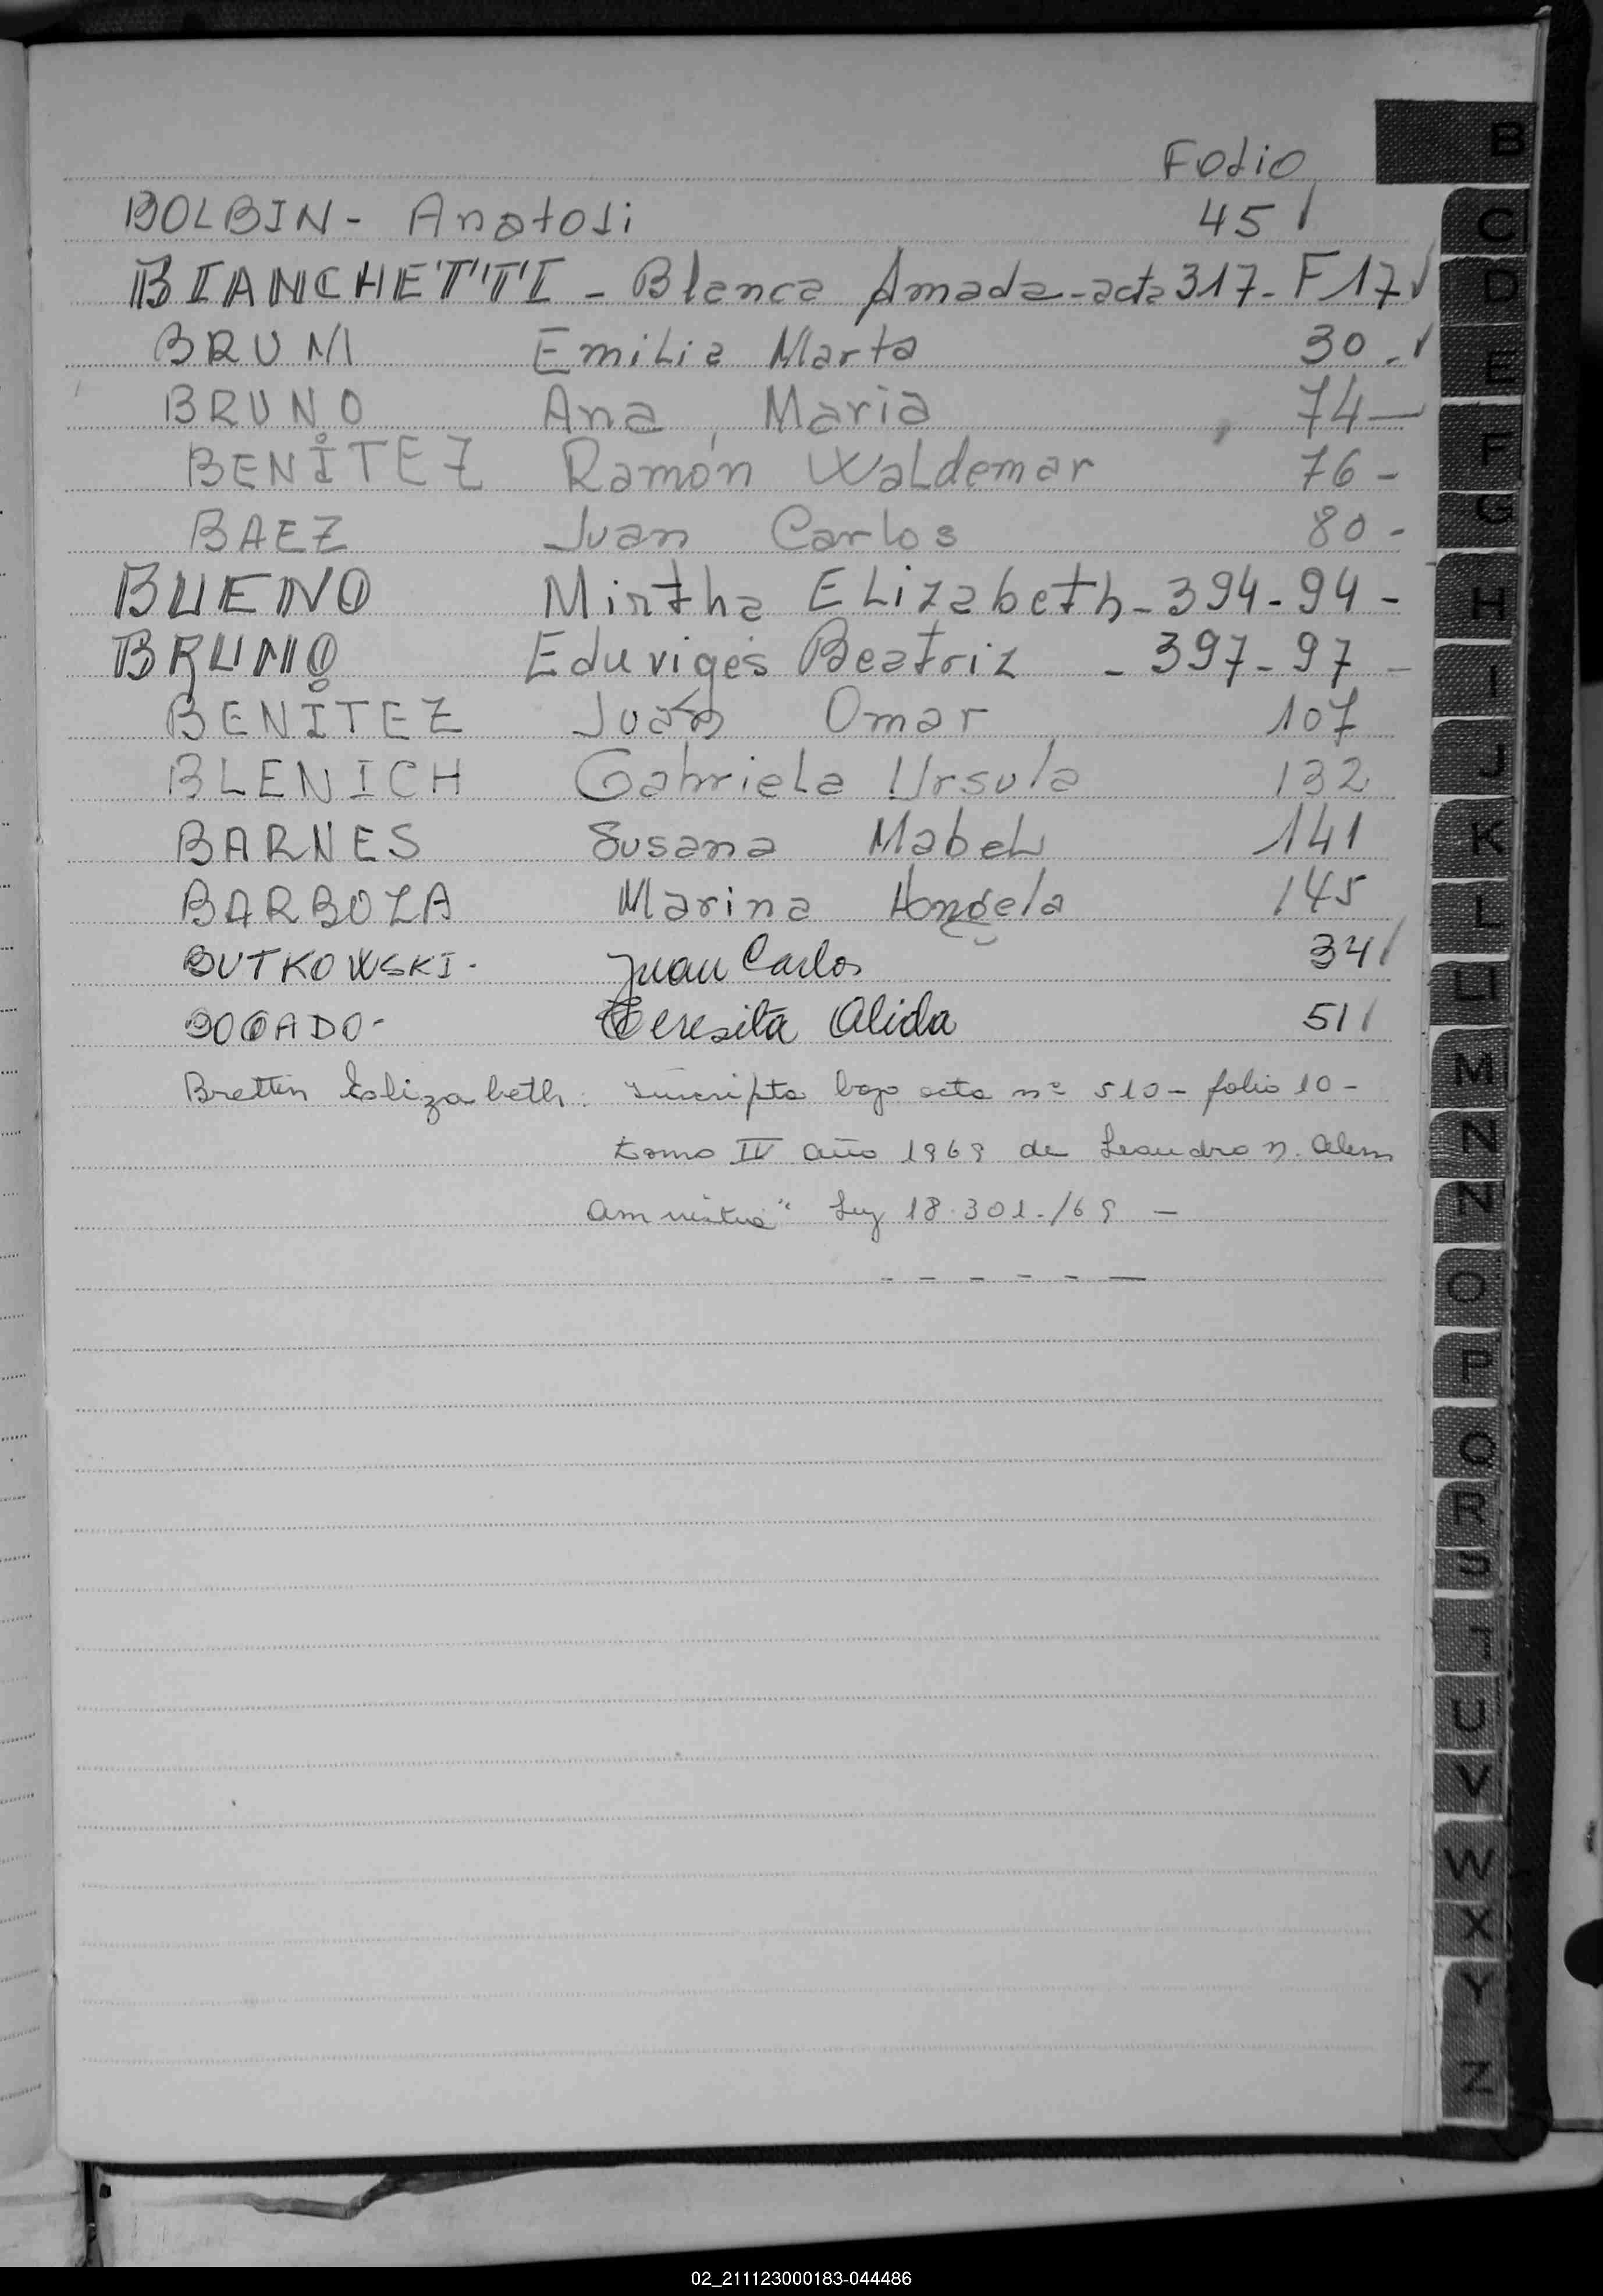 Folio
BOLBIN - Anatoli 45
BIANCHETTI - Blanca Amada - acta 317 - F 17
BRUNI Emilia Marta 30 -
BRUNO Ana Maria 74 -
BENÍTEZ Ramón Waldemar 76 -
BAEZ Juan Carlos 80 -
BUENO Mirtha Elizabeth - 394 - 94 -
BRUNO Eduviges Beatriz - 397 - 97 -
BENÍTEZ Juan Omar 107
BLENICH Gabriela Ursula 132
BARNES Susana Mabel 141
BARBOZA Marina Angela 145
BUTKOWSKI - Juan Carlos 34
BOGADO - Teresita Alida 51
Brettin Elizabeth: Inscripta bajo acta nº 510 - folio 10 -
tomo IV año 1969 de Leandro N. Alem
Ley 18.301./69 -
B
C
D
E
F
G
H
I
J
K
L
LL
M
N
Ñ
O
P
Q
R
S
T
U
V
W
X
Y
Z
02_211123000183-044486